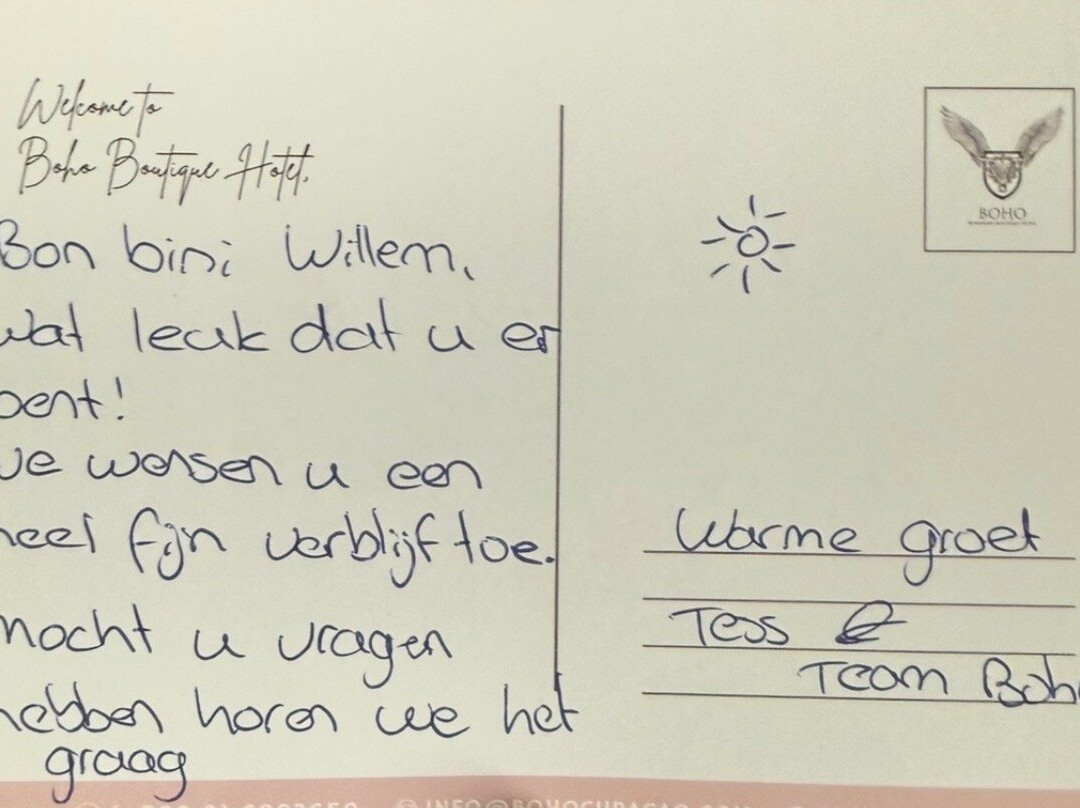 Welcome to
Boho Boutique Hotel,
Bon bini Willem,
wat leuk dat u er
bent!
we wensen u een
heel fijn verblijf toe.
mocht u vragen
hebben horen we het
graag
BOHO
Warme groet
Tess &
Team Boh
INFO@BOHOCURACAO.COM